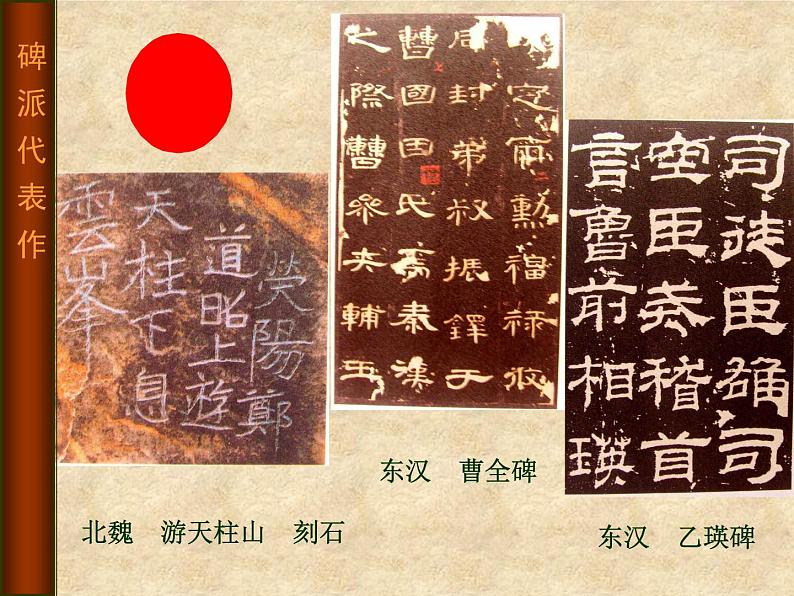 碑派代表作
熒陽鄭
道昭上遊
天柱下息
雲峯
定爾勳福禄攸
同封弟叔振鐸于
曹國因氏焉秦漢
之際曹參夾輔王
司徒臣雄司
空臣戒稽首
言魯前相瑛
东汉 曹全碑
北魏 游天柱山 刻石
东汉 乙瑛碑